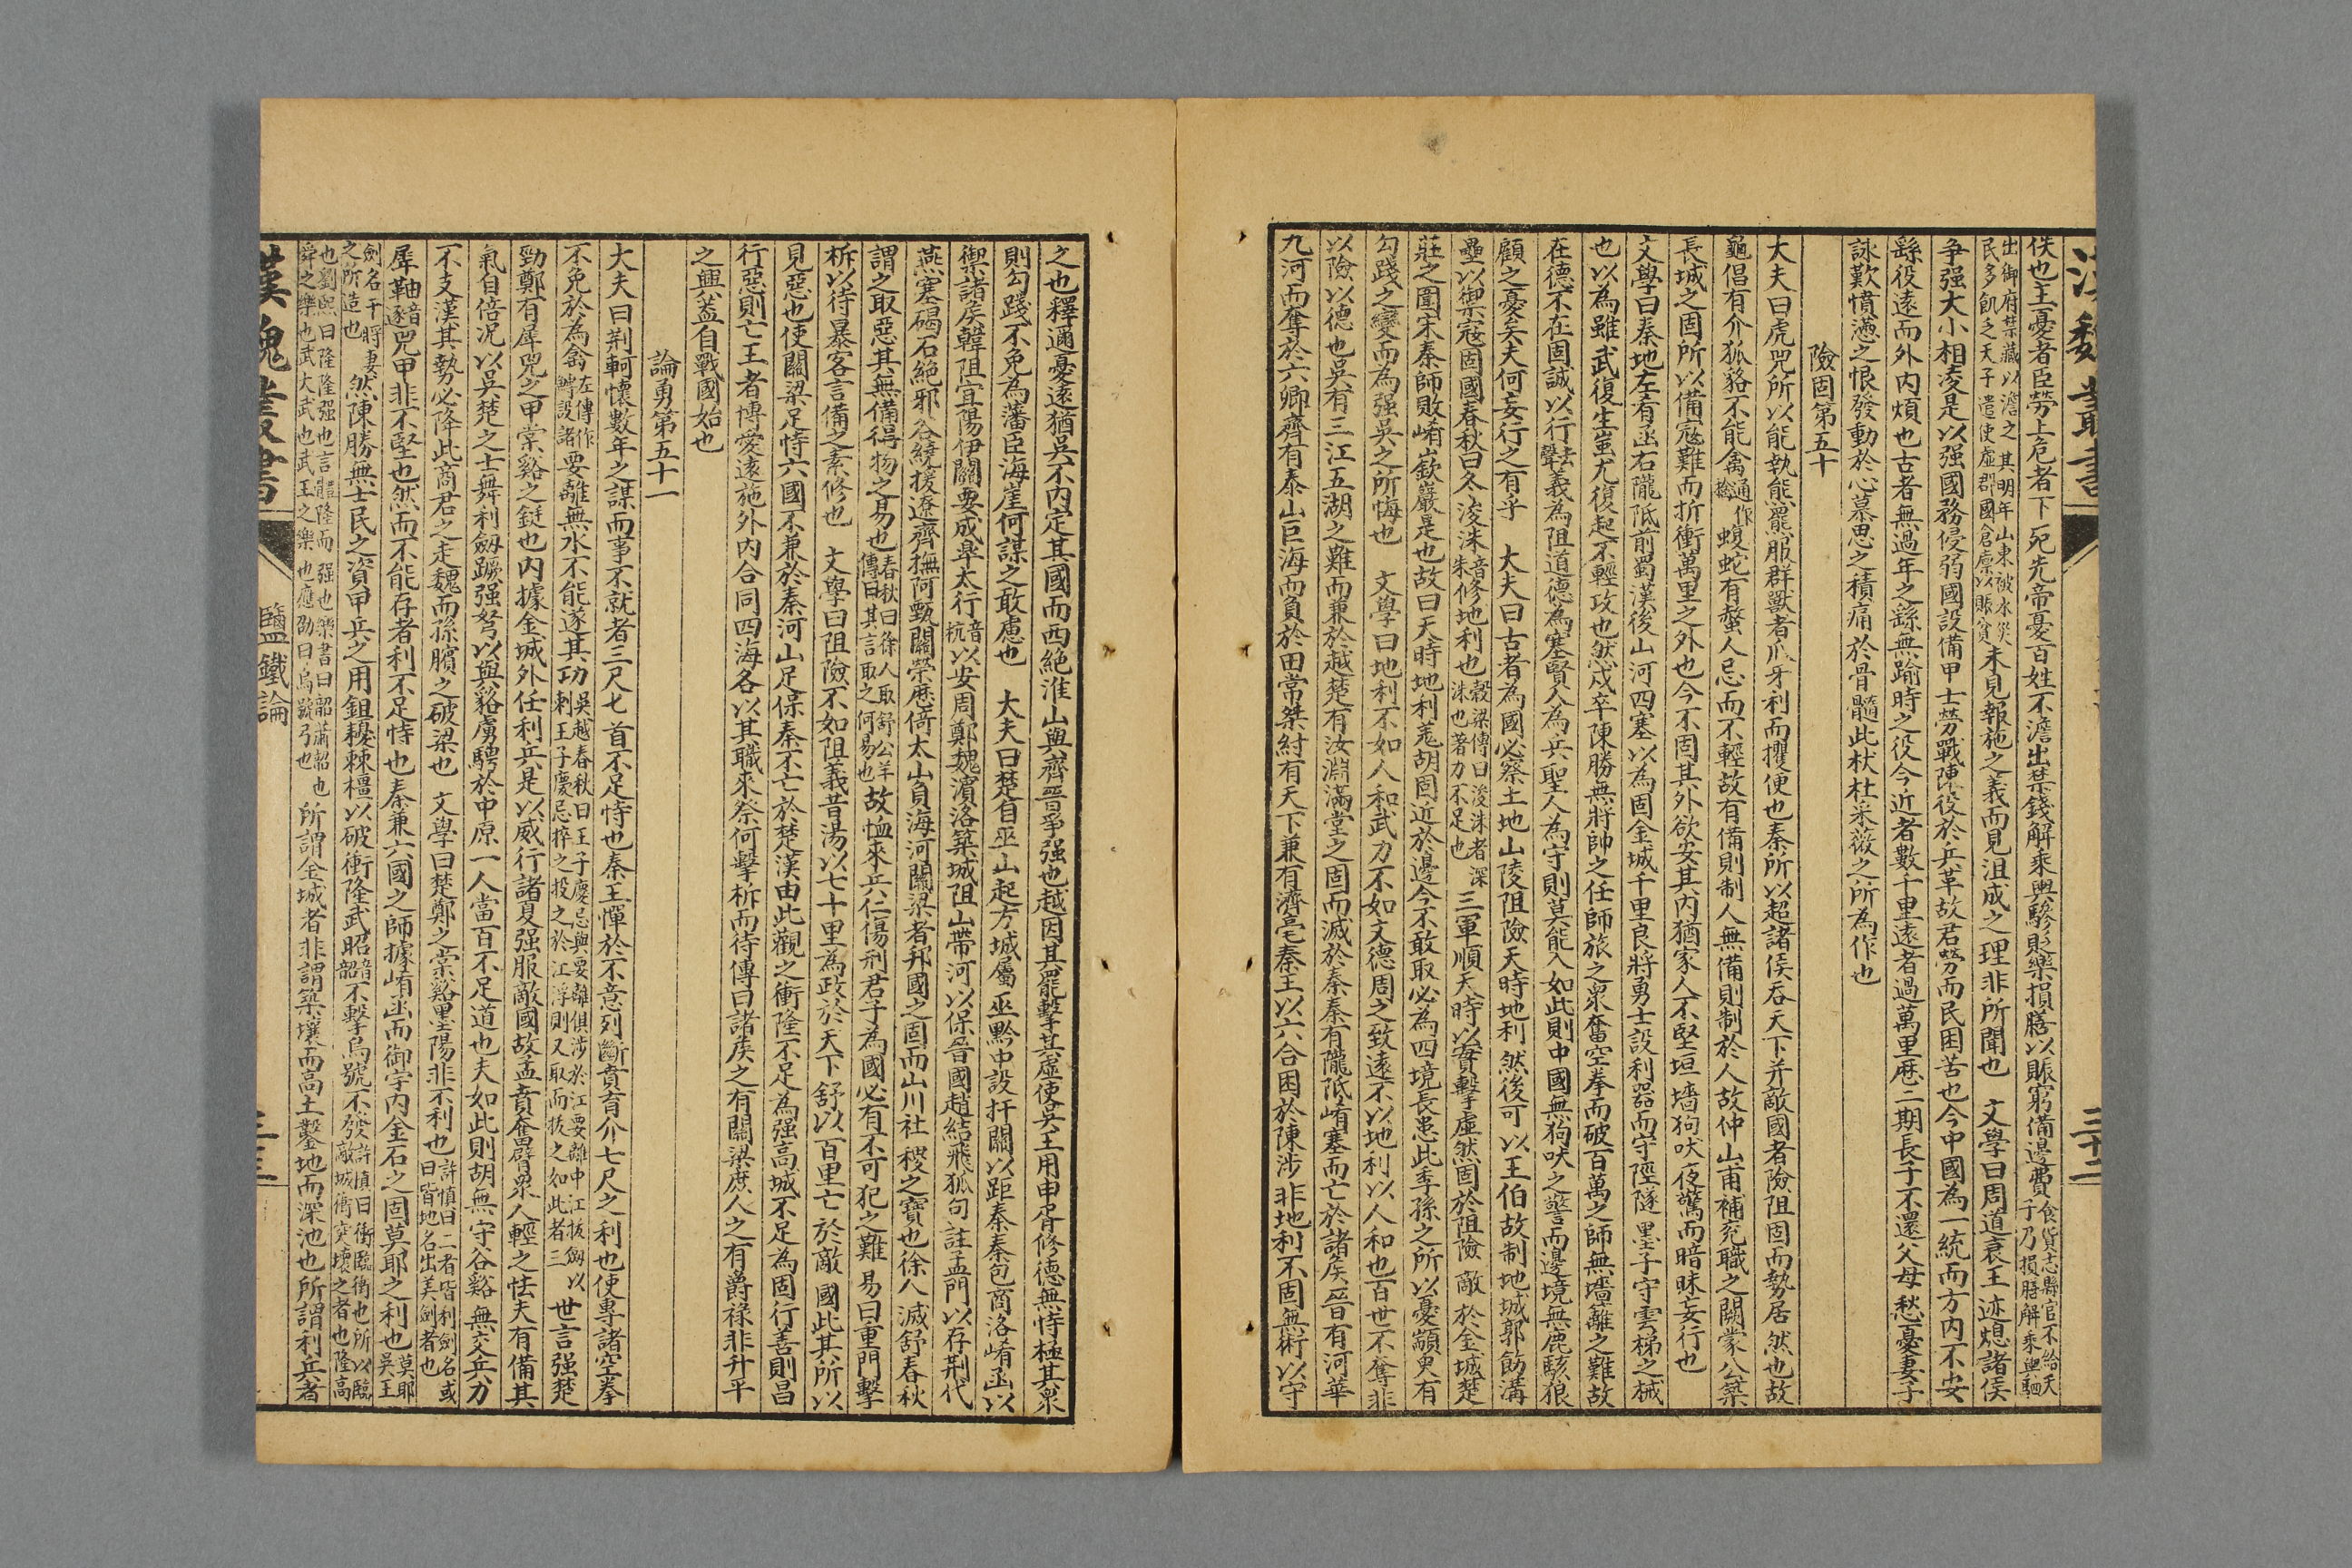 漢魏叢書
三十二
佚也主憂者臣勞上危者下死先帝憂百姓不澹出禁錢解乘輿驂貶樂損膳以賑窮備邊費食貨志縣官不給天子乃損膳解乘輿駟
出御府禁藏以澹之其明年山東被水災民多飢乏天子遣使虛郡國倉廩以賑貧未見報施之義而見沮成之理非所聞也　文學曰周道衰王迹熄諸侯
爭强大小相凌是以强國務侵弱國設備甲士勞戰陳役於兵革故君勞而民困苦也今中國為一統而方內不安
繇役遠而外內煩也古者無過年之繇無踰時之役今近者數千里遠者過萬里歷二期長子不還父母愁憂妻子
詠歎憤懣之恨發動於心慕思之積痛於骨髓此杕杜采薇之所為作也
險固第五十
大夫曰虎兕所以能執熊羆服群獸者爪牙利而攫便也秦所以超諸侯吞天下并敵國者險阻固而勢居然也故
龜倡有介狐貉不能禽通作擒蝮蛇有螫人忌而不輕故有備則制人無備則制於人故仲山甫補袞職之闕蒙公築
長城之固所以備寇難而折衝萬里之外也今不固其外欲安其內猶家人不堅垣墻狗吠夜驚而暗昧妄行也
文學曰秦地左有函右隴阺前蜀漢後山河四塞以為固金城千里良將勇士設利器而守陘隧墨子守雲梯之械
也以為雖武復生蚩尤復起不輕攻也然戍卒陳勝無將帥之任師旅之衆奮空拳而破百萬之師無墻籬之難故
在德不在固誠以行去聲義為阻道德為塞賢人為兵聖人為守則莫能入如此則中國無狗吠之警而邊境無鹿駭狼
顧之憂矣夫何妄行之有乎　大夫曰古者為國必察土地山陵阻險天時地利然後可以王伯故制地城郭飭溝
壘以禦寇固國春秋曰冬浚洙音朱修地利也穀梁傳曰浚洙者深洙也著力不足也三軍順天時以實擊虛然固於阻險敵於金城楚
莊之圍宋秦師敗崤嶔巖是也故曰天時地利羗胡固近於邊今不敢取必為四境長患此季孫之所以憂顓臾有
勾踐之變而為强吳之所悔也　文學曰地利不如人和武力不如文德周之致遠不以地利以人和也百世不奪非
以險以德也吳有三江五湖之難而兼於越楚有汝淵滿堂之固而滅於秦秦有隴阺崤塞而亡於諸侯晉有河華
九河而奪於六卿齊有泰山巨海而負於田常桀紂有天下兼有濟亳秦王以六合困於陳涉非地利不固無術以守
之也釋邇憂遠猶吳不內定其國而西絶淮山與齊晉爭强也越因其罷擊其虛使吳王用申胥修德無恃極其衆
則勾踐不免為藩臣海崖何謀之敢慮也　大夫曰楚自巫山起方城屬巫黔中設扞關以距秦秦包商洛崤函以
禦諸侯韓阻宜陽伊關要成皋太行音杭以安周鄭魏濱洛築城阻山帶河以保晉國趙結飛狐句註孟門以存荆代
燕塞碣石絶邪谷繞援遼齊撫阿甄關榮歷倚太山負海河關梁者邦國之固而山川社稷之寶也徐人滅舒春秋
謂之取惡其無備得物之易也春秋曰徐人取舒公羊傳曰其言取之何易也故恤來兵仁傷刑君子為國必有不可犯之難易曰重門擊
柝以待暴客言備之素修也　文學曰阻險不如阻義昔湯以七十里為政於天下舒以百里亡於敵國此其所以
見惡也使關梁足恃六國不兼於秦河山足保秦不亡於楚漢由此觀之衝隆不足為强高城不足為固行善則昌
行惡則亡王者博愛遠施外內合同四海各以其職來祭何擊柝而待傳曰諸侯之有關梁庶人之有爵祿非升平
之興葢自戰國始也
論勇第五十一
大夫曰荆軻懷數年之謀而事不就者三尺七首不足恃也秦王憚於不意列斷賁育介七尺之利也使專諸空拳
不免於為禽左傳作鱄設諸要離無水不能遂其功吳越春秋曰王子慶忌與要離俱涉於江要離中江拔劍以刺王子慶忌捽之投之於江浮則又取而投之如此者三世言强楚
勁鄭有犀兕之甲棠谿之鋌也內據金城外任利兵是以威行諸夏强服敵國故孟賁奮臂衆人輕之怯夫有備其
氣自倍況以吳楚之士舞利劔蹶强弩以與貉虜騁於中原一人當百不足道也夫如此則胡無守谷谿無交兵力
不支漢其勢必降此商君之走魏而孫臏之破梁也　文學曰楚鄭之棠谿墨陽非不利也許慎曰二者皆利劍名或曰皆地名出美劍者也
犀軸音逐兕甲非不堅也然而不能存者利不足恃也秦兼六國之師據崤函而御宇內金石之固莫耶之利也莫耶吳王
劍名干將妻之所造也然陳勝無士民之資甲兵之用鉏耰棘橿以破衝隆武昭音韶不擊烏號不發許慎曰衝臨衝也所以臨敵城衝突壞之者也隆高
也劉熙曰隆隆强也言體隆而强也樂書曰韶簫韶也舜之樂也武大武也武王之樂也應劭曰烏號弓也所謂金城者非謂築壤而高土鑿地而深池也所謂利兵者
漢魏叢書
鹽鐵論